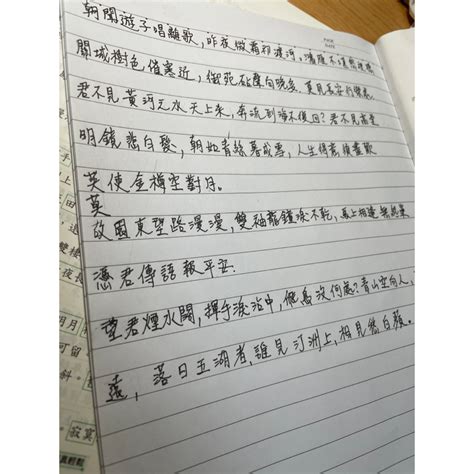 朝聞遊子唱離歌，昨夜微霜初渡河，鴻雁不堪愁裡
關城樹色催寒近，御苑砧聲向晚多，莫見長安行樂
君不見黃河之水天上來，奔流到海不復回？君不見高堂
明鏡悲白髮，朝如青絲暮成雪，人生得意須盡歡
英使金樽空對月。
莫
故園東望路漫漫，雙袖龍鍾淚不乾，馬上相逢無紙筆
憑君傳語報平安.
望君煙水闊，揮手淚沾巾，飛鳥沒何處？青山空向人，
遠，落日五湖春，誰見汀洲上，相見愁白蘋。